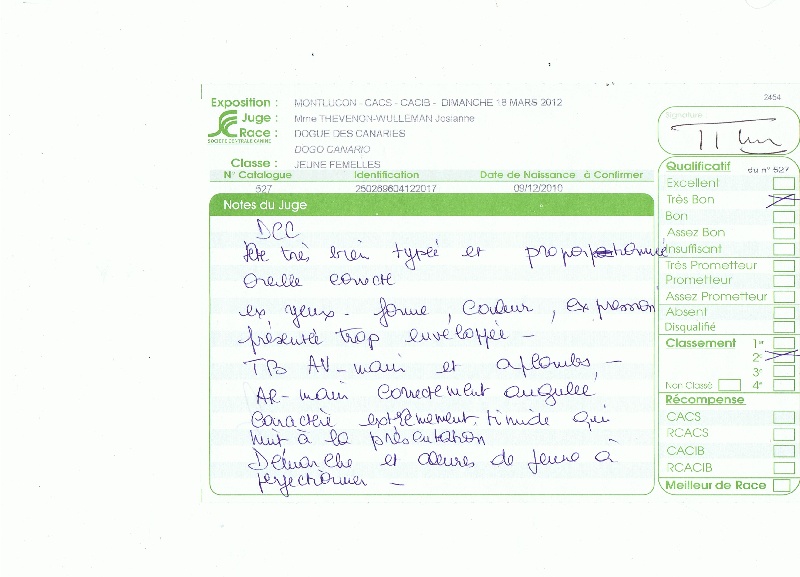 2464
Exposition : MONTLUCON - CACS - CACIB - DIMANCHE 18 MARS 2012
Juge : Mme THEVENON-WULLEMAN Josianne
Race : DOGUE DES CANARIES
SOCIETE CENTRALE CANINE
DOGO CANARIO
Classe : JEUNE FEMELLES
N° Catalogue Identification Date de Naissance à Confirmer
527 250269604122017 09/12/2010
Notes du Juge
DCC
tête très bien typée et proportionnée
oreille correcte
ex yeux - forme, couleur, expression
présentée trop enveloppée -
TB AV-main et aplombs, -
AR-main correctement angulée
caractère extrêmement timide qui
nuit à la présentation
Démarche et allures de jeune à
perfectionner -
Signature
Qualificatif du n° 527
Excellent
Très Bon
Bon
Assez Bon
Insuffisant
Très Prometteur
Prometteur
Assez Prometteur
Absent
Disqualifié
Classement 1er
2e
3e
Non Classé 4e
Récompense
CACS
RCACS
CACIB
RCACIB
Meilleur de Race